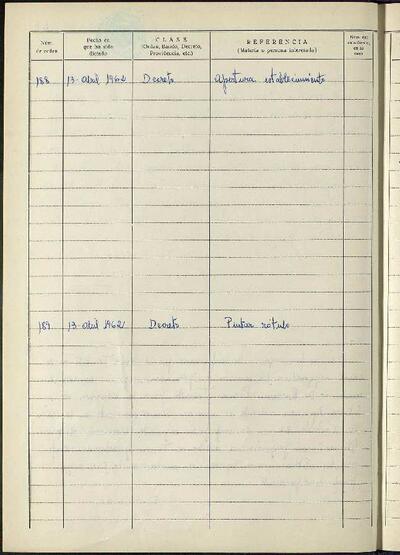 Núm. de orden
Fecha en que ha sido dictado
CLASE
(Orden, Bando, Decreto, Providencia, etc.)
REFERENCIA
(Materia o persona interesada)
188 13-Abril 1962 Decreto Apertura establecimiento
189 13-abril 1962 Decreto Pintar rótulo